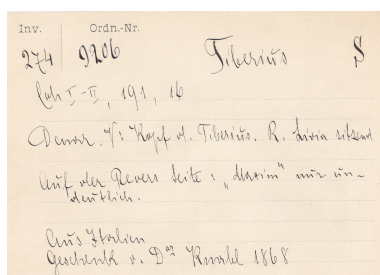 Inv. Ordn.-Nr.
274 9206 Tiberius S
Coh I-II, 191, 16
Denar. V: Kopf d. Tiberius. R. Livia sitzend
Auf der Revers Seite: „Maxim" nur un-
deutlich.
Aus Italien
Geschenk v. 1868